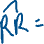 R̂R =